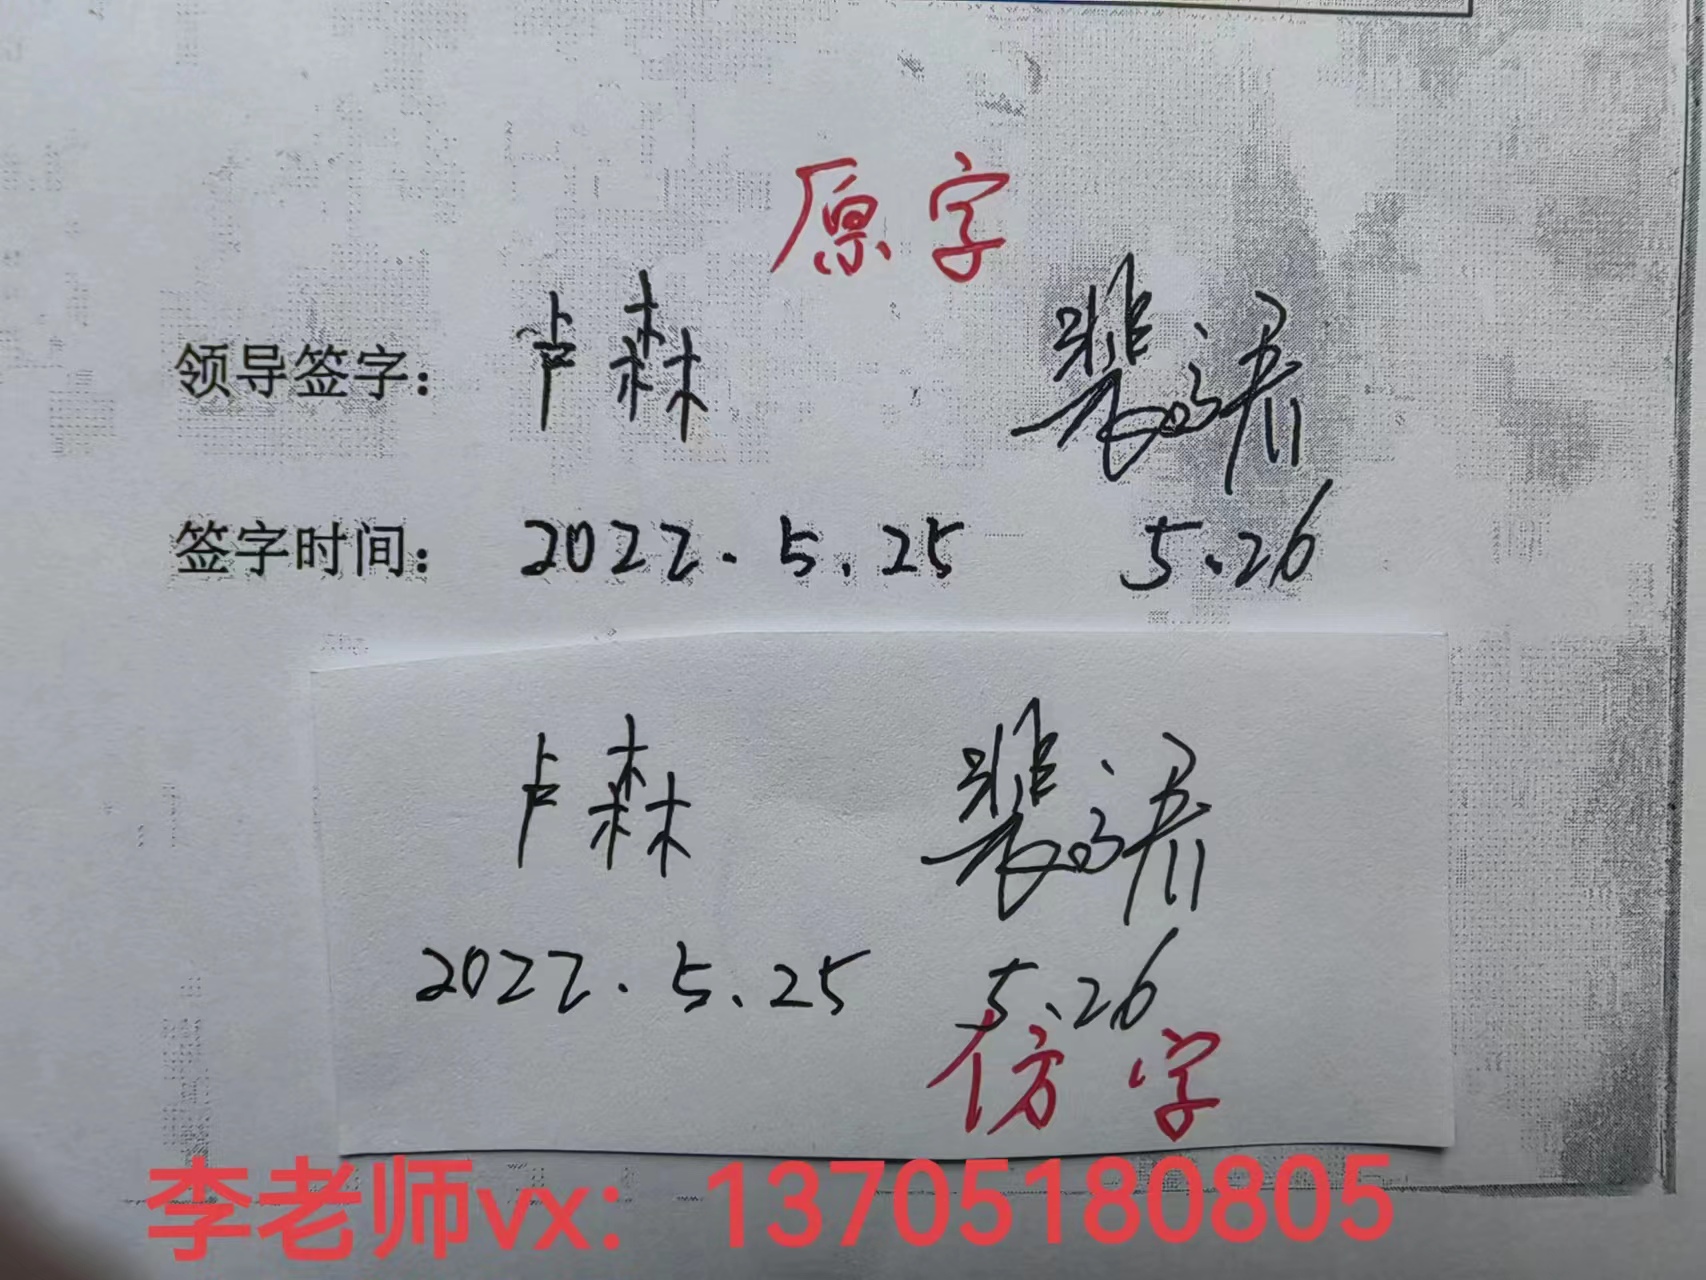 原字
领导签字： 卢森 裴
签字时间： 2022.5.25 5.26
卢森 裴
2022.5.25 5.26
仿字
李老师vx：13705180805